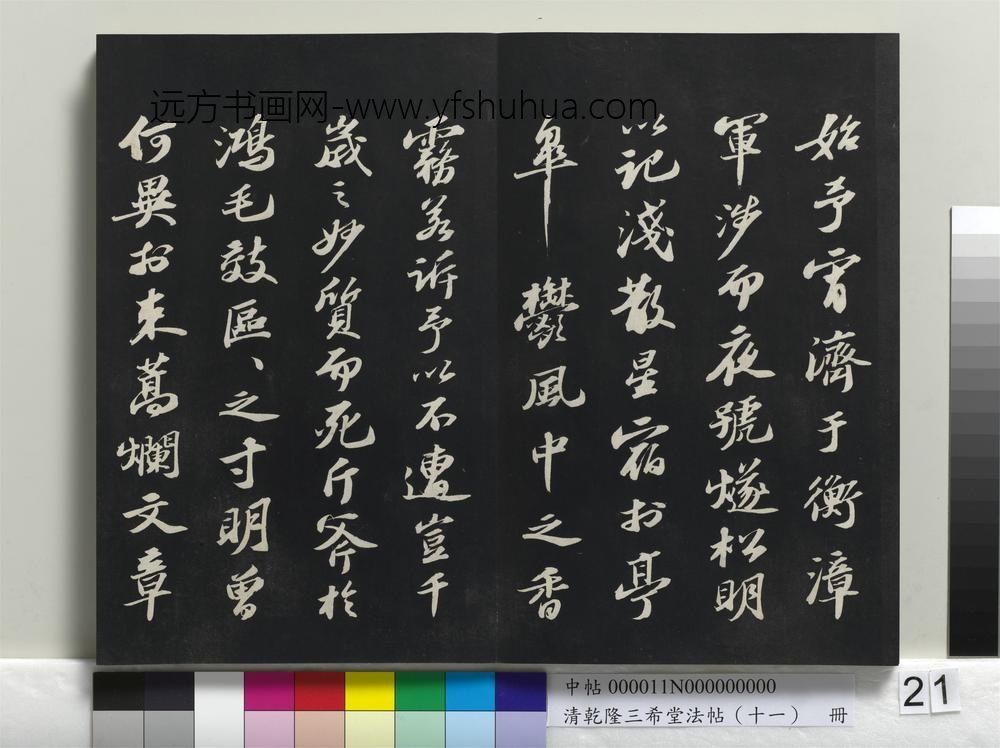 远方书画网-www.yfshuhua.com
始予宵濟于衡漳
軍涉而夜號燧松明
以記淺散星宿於亭
皋鬱風中之香
霧若訴予以不遭豈千
歲之妙質而死斤斧於
鴻毛效區〻之寸明曾
何異於束蒿爛文章
中帖 000011N000000000
清乾隆三希堂法帖（十一） 冊
21